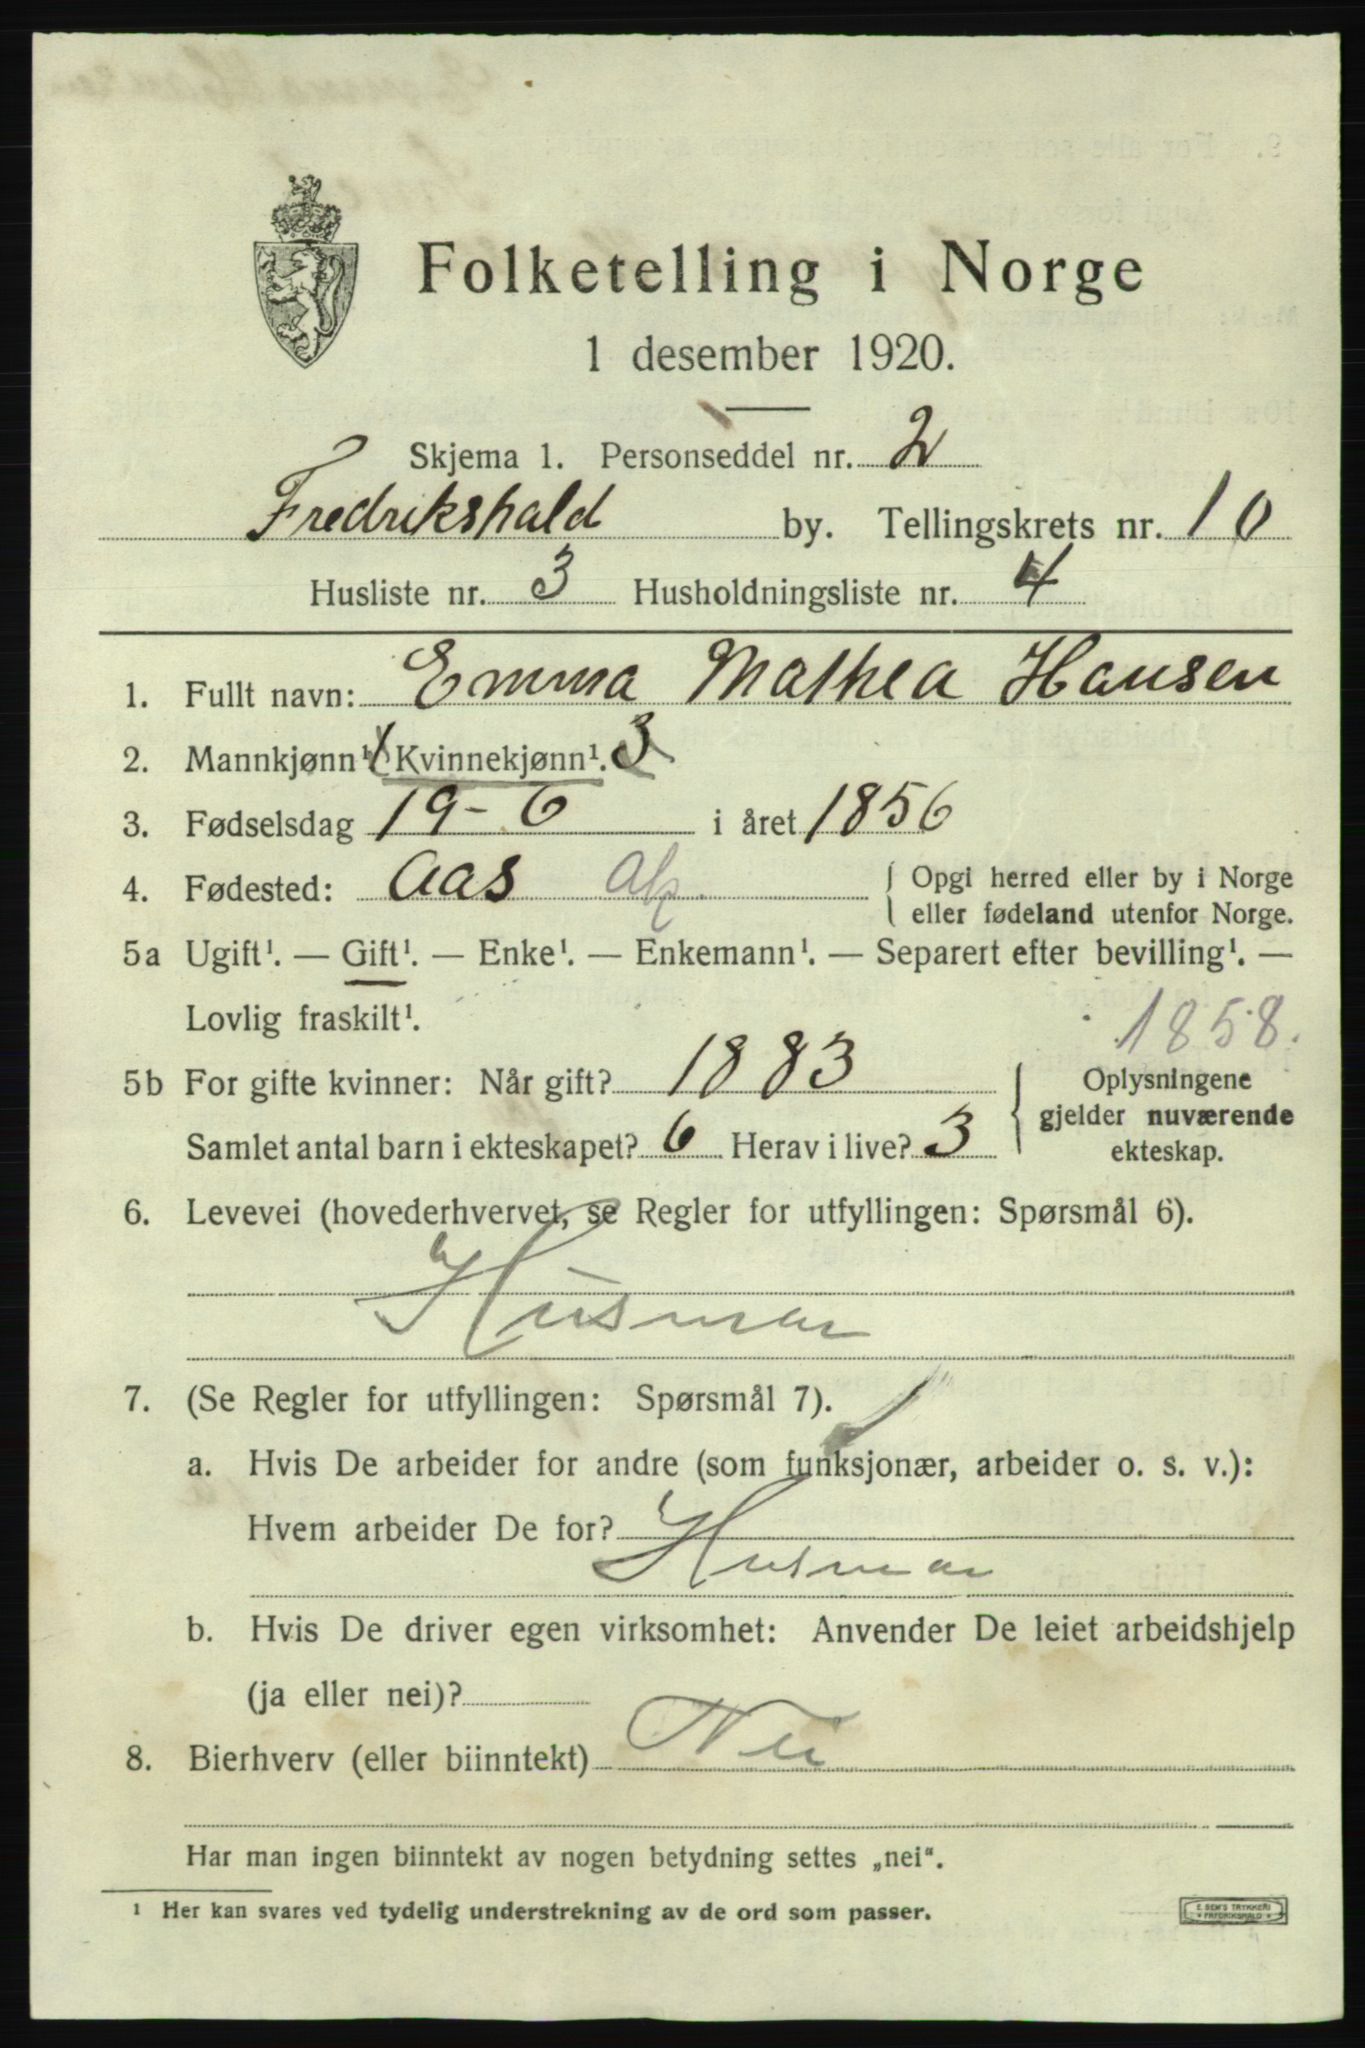 Folketelling i Norge
1 desember 1920.
Skjema 1. Personseddel nr. 2
Fredrikshald by. Tellingskrets nr. 10
Husliste nr. 3 Husholdningsliste nr. 4
1. Fullt navn: Emma Mathea Hansen
2. Mannkjønn¹. Kvinnekjønn¹. 3
3. Fødselsdag 19-6 i året 1856
4. Fødested: Aas { Opgi herred eller by i Norge
eller fødeland utenfor Norge.
5a Ugift¹. — Gift¹. — Enke¹. — Enkemann¹. — Separert efter bevilling¹. —
Lovlig fraskilt¹.
1858.
5b For gifte kvinner: Når gift? 1883 { Oplysningene
gjelder nuværende
Samlet antal barn i ekteskapet? 6 Herav i live? 3 ekteskap.
6. Levevei (hovederhvervet, se Regler for utfyllingen: Spørsmål 6).
Husmor
7. (Se Regler for utfyllingen: Spørsmål 7).
a. Hvis De arbeider for andre (som funksjonær, arbeider o. s. v.):
Hvem arbeider De for?
Husmor
b. Hvis De driver egen virksomhet: Anvender De leiet arbeidshjelp
(ja eller nei)?
8. Bierhverv (eller biinntekt) Nei
Har man ingen biinntekt av nogen betydning settes „nei“.
¹ Her kan svares ved tydelig understrekning av de ord som passer.
E. SEM'S TRYKKERI
FREDRIKSHALD